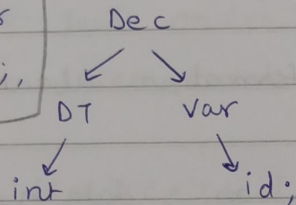 Dec
DT var
int id;